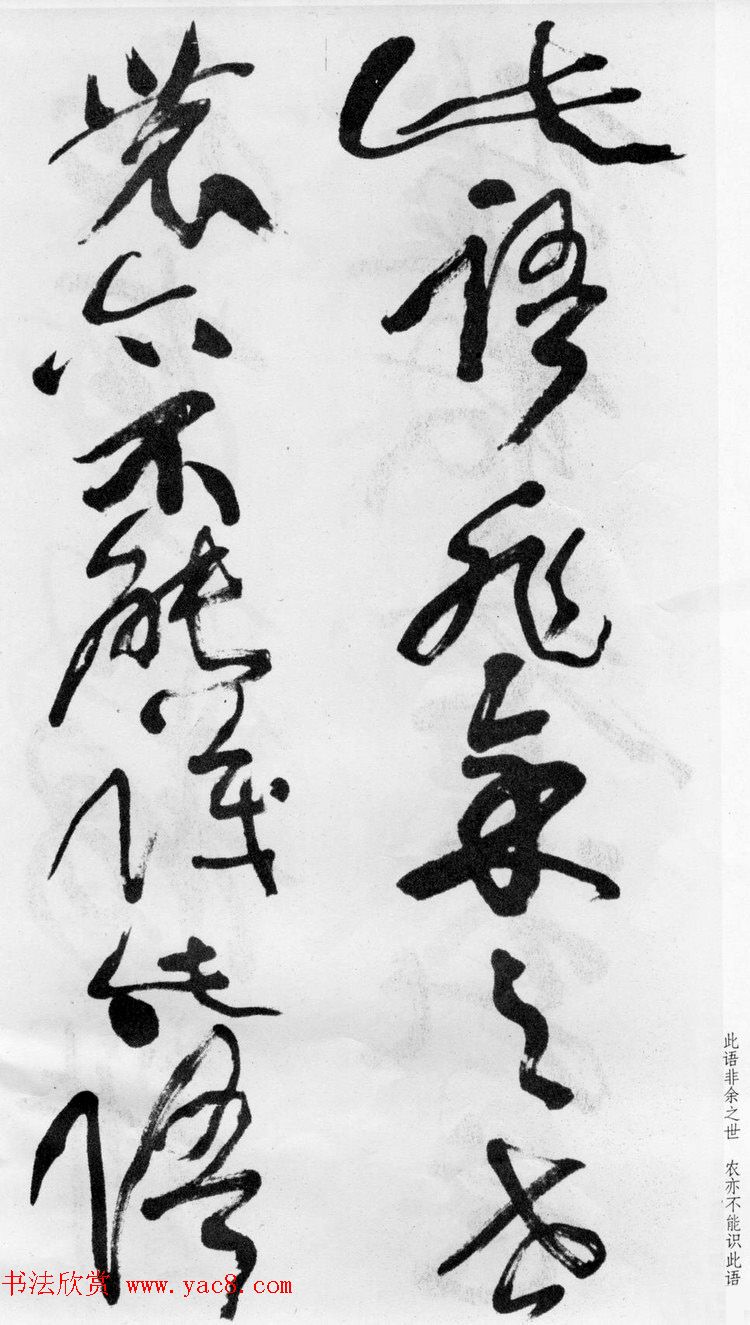 此語非余之世
農亦不能識此語
此语非余之世 农亦不能识此语
书法欣赏 www.yac8.com